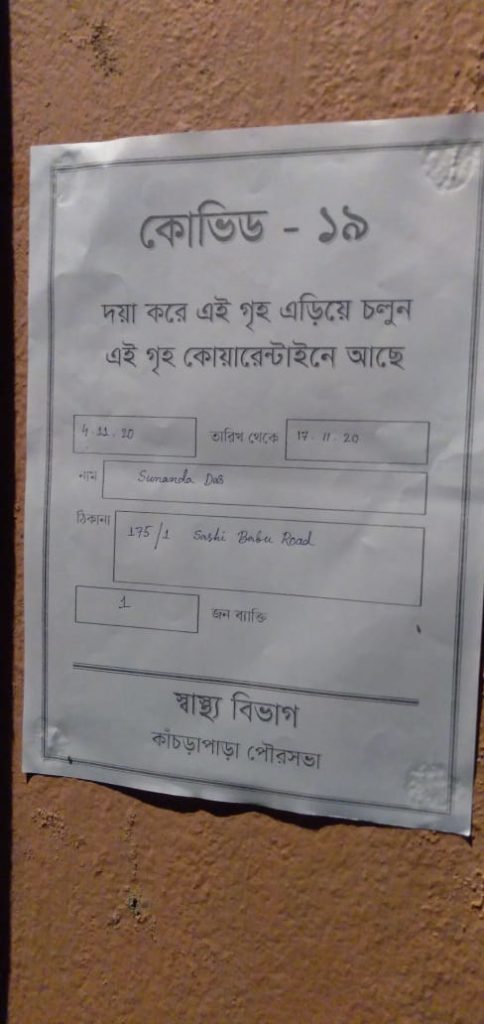 কোভিড - ১৯
দয়া করে এই গৃহ এড়িয়ে চলুন
এই গৃহ কোয়ারেন্টাইনে আছে
4.11.20 তারিখ থেকে 17.11.20
নাম Sunanda Das
ঠিকানা 175/1 Sashi Babu Road
1 জন ব্যাক্তি
স্বাস্থ্য বিভাগ
কাঁচড়াপাড়া পৌরসভা